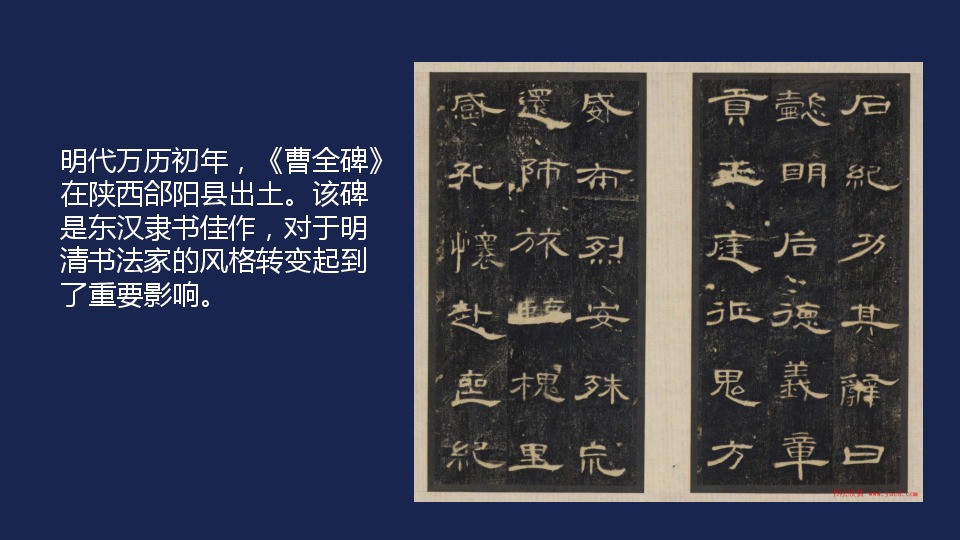 明代万历初年，《曹全碑》
在陕西郃阳县出土。该碑
是东汉隶书佳作，对于明
清书法家的风格转变起到
了重要影响。
石紀功其辭曰
懿明后德義章
貢王庭征鬼方
威布烈安殊荒
還師旅臨槐里
感孔懷赴喪紀
www.yac8.com